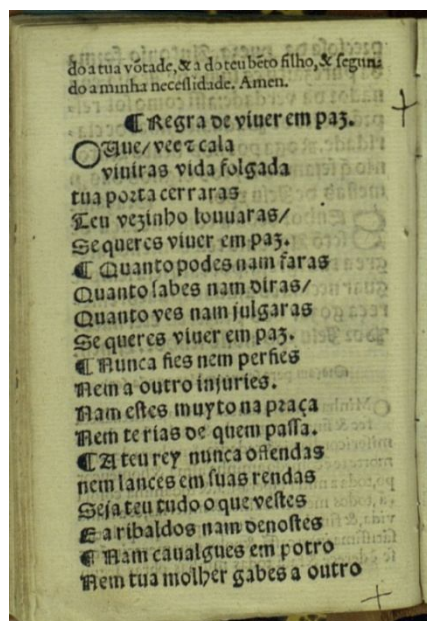 do a tua võtade, & a do teu bẽto filho, & segun
do a minha necessidade. Amen.
¶ Regra de viuer em paz.
OUue/ vee ⁊ cala
viuiras vida folgada
tua porta cerraras
Teu vezinho louuaras/
Se queres viuer em paz.
¶ Quanto podes nam faras
Quanto sabes nam diras/
Quanto ves nam julgaras
Se queres viuer em paz.
¶ Nunca fies nem perfies
Nem a outro injuries.
Nam estes muyto na praça
Nem te rias de quem passa.
¶ A teu rey nunca offendas
nem lances em suas rendas
Seja teu tudo o que vestes
E a ribaldos nam denostes
¶ Nam caualgues em potro
Nem tua molher gabes a outro